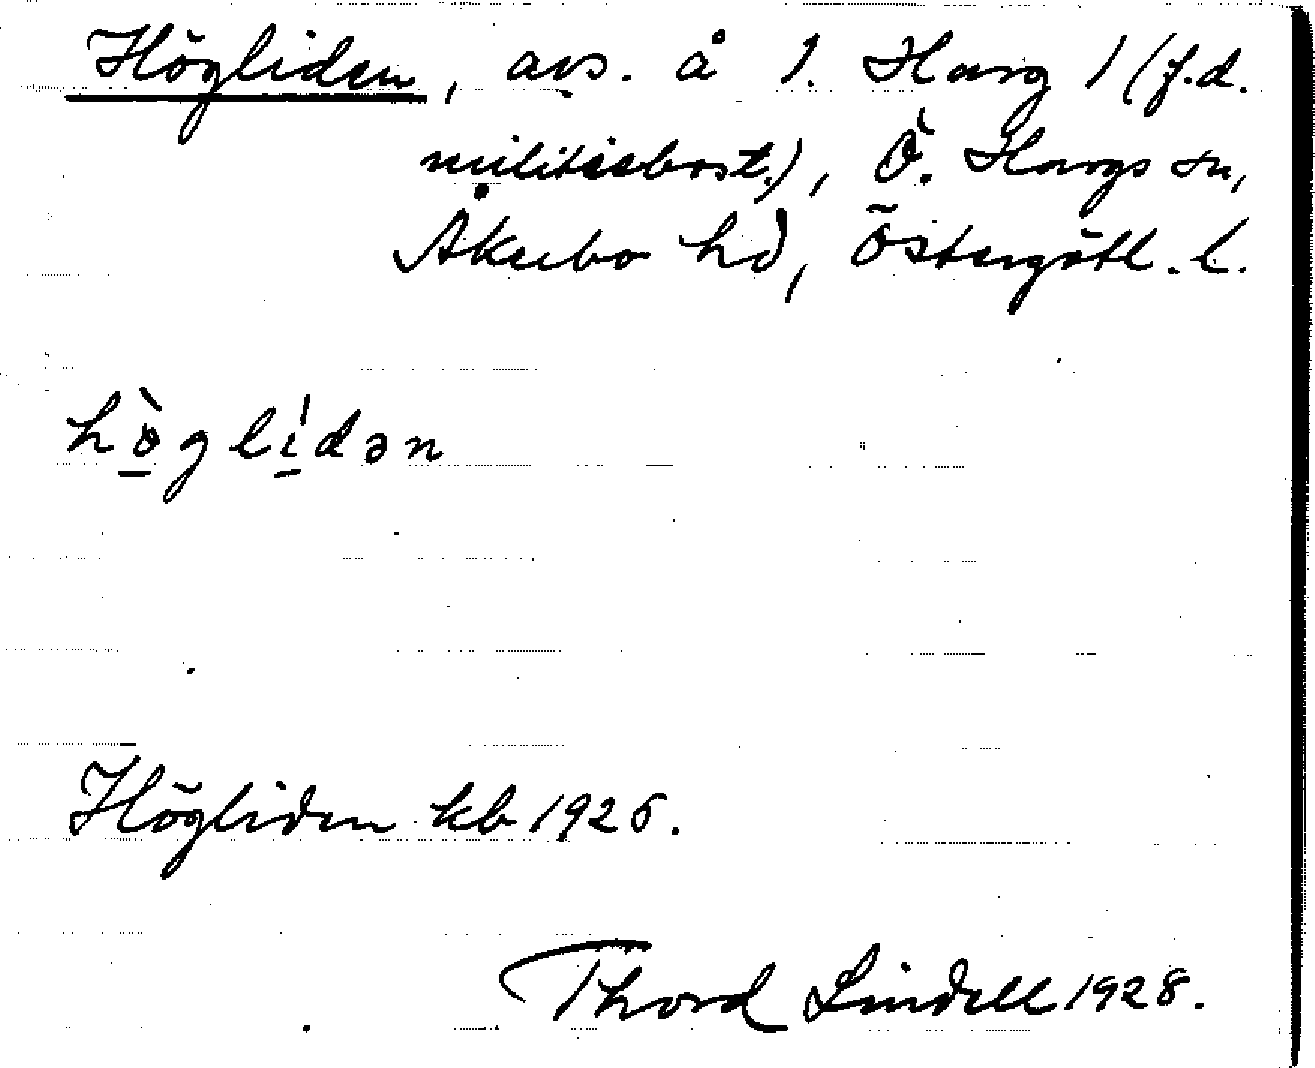 Högliden, avs. å 1. Harg 1 (f.d.
militiebost.), Ö. Hargs sn,
Åkerbo hd, Östergötl. l.
hòglídən
Högliden kb 1926.
Thord Lindell 1928.